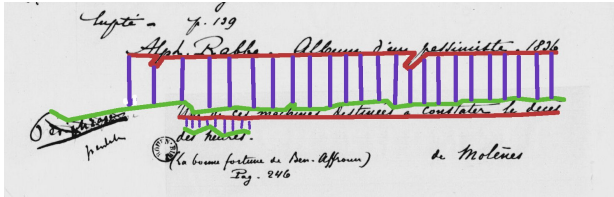 lupté - p. 139
Alph. Rabbe. Album d'un pessimiste. 1836
Une de ces machines destinées à constater le décès
des heures.
(La bonne fortune de Ben-Afroun)
de Molènes
Pag. 246